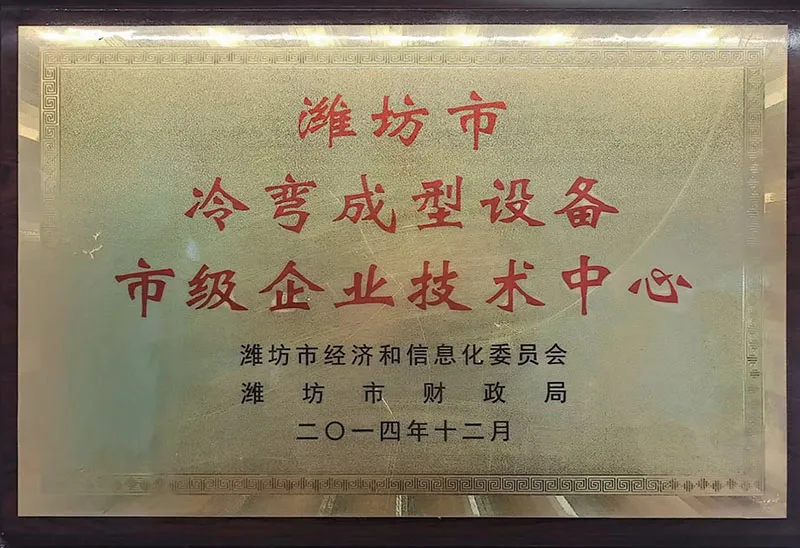 潍坊市
冷弯成型设备
市级企业技术中心
潍坊市经济和信息化委员会
潍坊市财政局
二〇一四年十二月